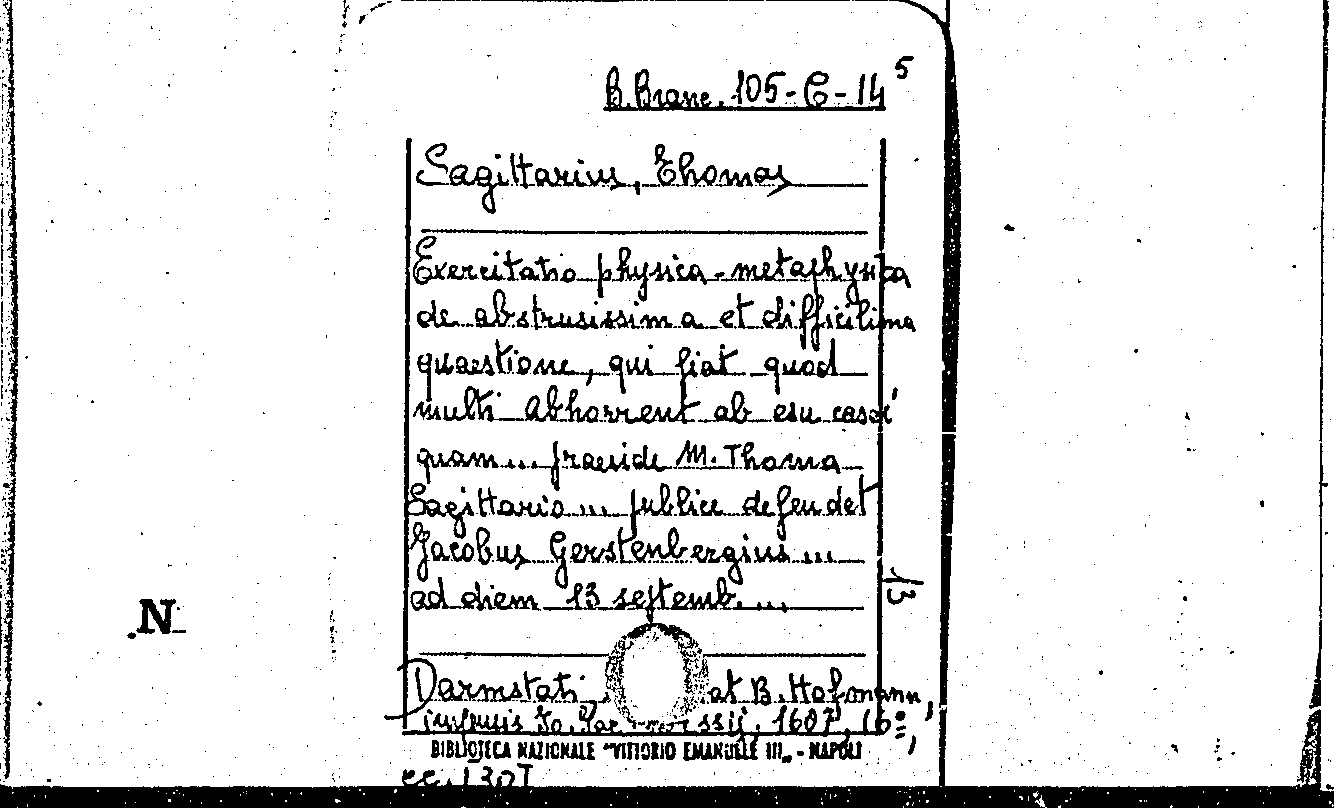 B. Branc. 105-C-14 5
Sagittarius, Thomas
Exercitatio physica-metaphysica
de abstrusissima et difficilima
quaestione, qui fiat quod
multi abhorrent ab esu casei
quam... praeside M. Thoma
Sagittario ... publice defendet
Jacobus Gerstenbergius ...
ad diem 13 septemb. ...
13
N
Darmstati at B. Hofmann,
impensis Jo. Jac ssij, 1607, 16º,
BIBLIOTECA NAZIONALE "VITTORIO EMANUELE III" - NAPOLI
cc. 130